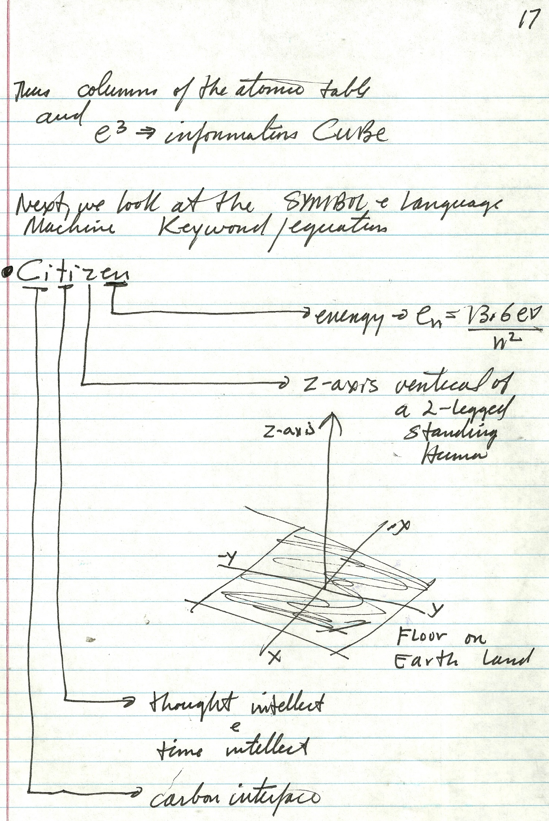 17
Thus columns of the atomic table
and
e³ ⇒ information CUBE
Next, we look at the SYMBOL e Language
Machine Keyword/equation
• Citizen
energy → en = 13.6 eV
n²
z-axis vertical of
a 2-legged
standing
Human
z-axis
-x
-y
y
x
Floor on
Earth Land
thought intellect
e
time intellect
carbon interface